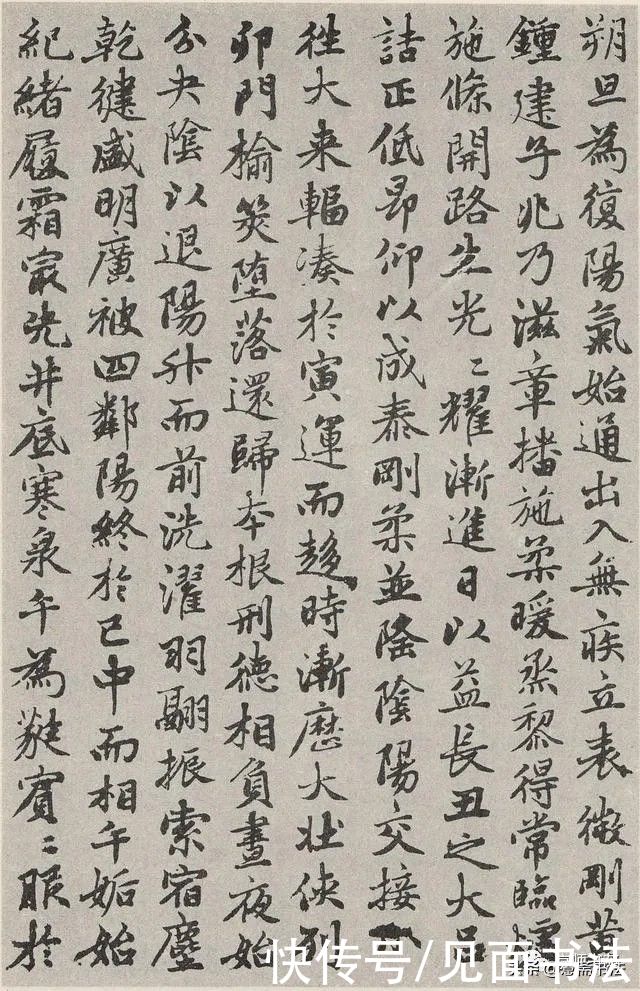 朔旦為復陽氣始通出入無疾立表微剛黃
鍾建子兆乃滋章播施柔暖烝黎得常臨爐
施條開路生光〻耀漸進日以益長丑之大吕
詰正低昂仰以成泰剛柔並隆陰陽交接小
往大来輻湊於寅運而趍時漸歷大壯俠列
卯門榆莢堕落還歸本根刑德相負晝夜始
分夬陰以退陽升而前洗濯羽翮振索宿塵
乾健盛明廣被四鄰陽終於巳中而相午姤始
紀緒履霜最先井底寒泉午為蕤賓〻眼於
快传号/见面书法